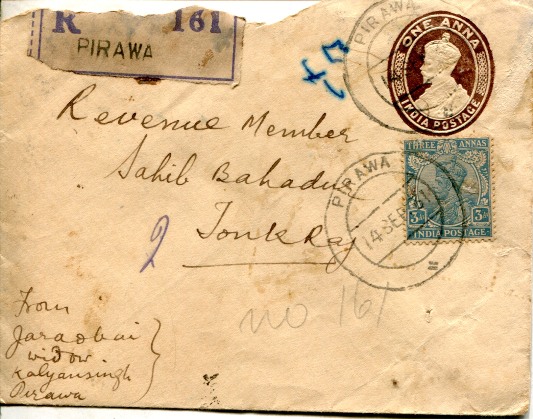 R 161
PIRAWA
PIRAWA
ONE ANNA
INDIA POSTAGE
Revenue Member
Sahib Bahadur
Tonk Raj
THREE ANNAS
3As 3As
INDIA POSTAGE
PIRAWA
14 SEP
no 161
From
Jaraobai
widow
Kalyansingh
Pirawa